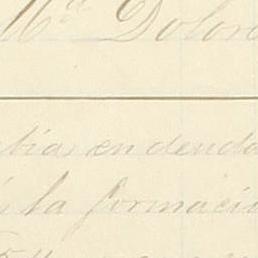 Mª Dolor
bia, en deuda
la formació